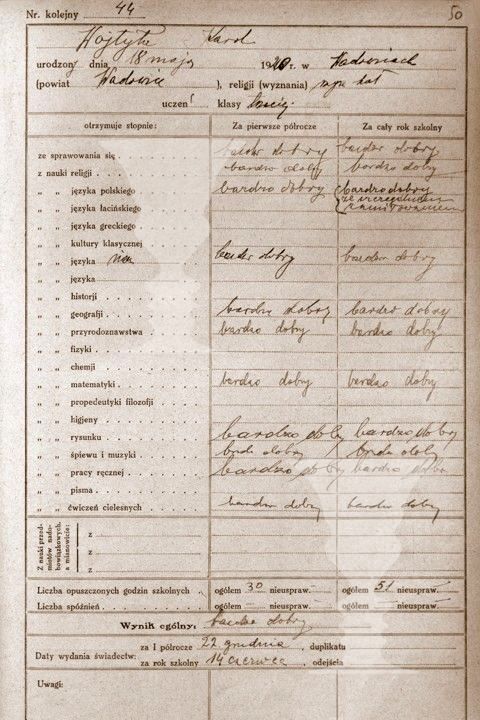 Nr. kolejny 44 50
Wojtyła Karol
urodzony dnia 18 maja 1920 r. w Wadowicach
(powiat Wadowice ), religii (wyznania) rzym kat
uczeń klasy trzeciej
otrzymuje stopnie: Za pierwsze półrocze Za cały rok szkolny
ze sprawowania się bardzo dobry bardzo dobry
z nauki religii bardzo dobry bardzo dobry
„ „ języka polskiego bardzo dobry bardzo dobry
ze szczególnem
zamiłowaniem
„ „ języka łacińskiego
„ „ języka greckiego
„ „ kultury klasycznej
„ „ języka niem bardzo dobry bardzo dobry
„ „ języka
„ „ historji
„ „ geografji bardzo dobry bardzo dobry
„ „ przyrodoznawstwa bardzo dobry bardzo dobry
„ „ fizyki
„ „ chemji
„ „ matematyki bardzo dobry bardzo dobry
„ „ propedeutyki filozofji
„ „ higjeny
„ „ rysunku bardzo dobry bardzo dobry
„ „ śpiewu i muzyki bardzo dobry bardzo dobry
„ „ pracy ręcznej bardzo dobry bardzo dobry
„ „ pisma
„ „ ćwiczeń cielesnych bardzo dobry bardzo dobry
Z nauki przed-
miotów nado-
bowiązkowych,
a mianowicie:
z
z
z
Liczba opuszczonych godzin szkolnych ogółem 30 nieuspraw. ogółem 51 nieuspraw.
Liczba spóźnień ogółem nieuspraw. ogółem nieuspraw.
Wynik ogólny: bardzo dobry
Daty wydania świadectw: za I półrocze 22 grudnia, duplikatu
za rok szkolny 14 czerwca, odejścia
Uwagi: